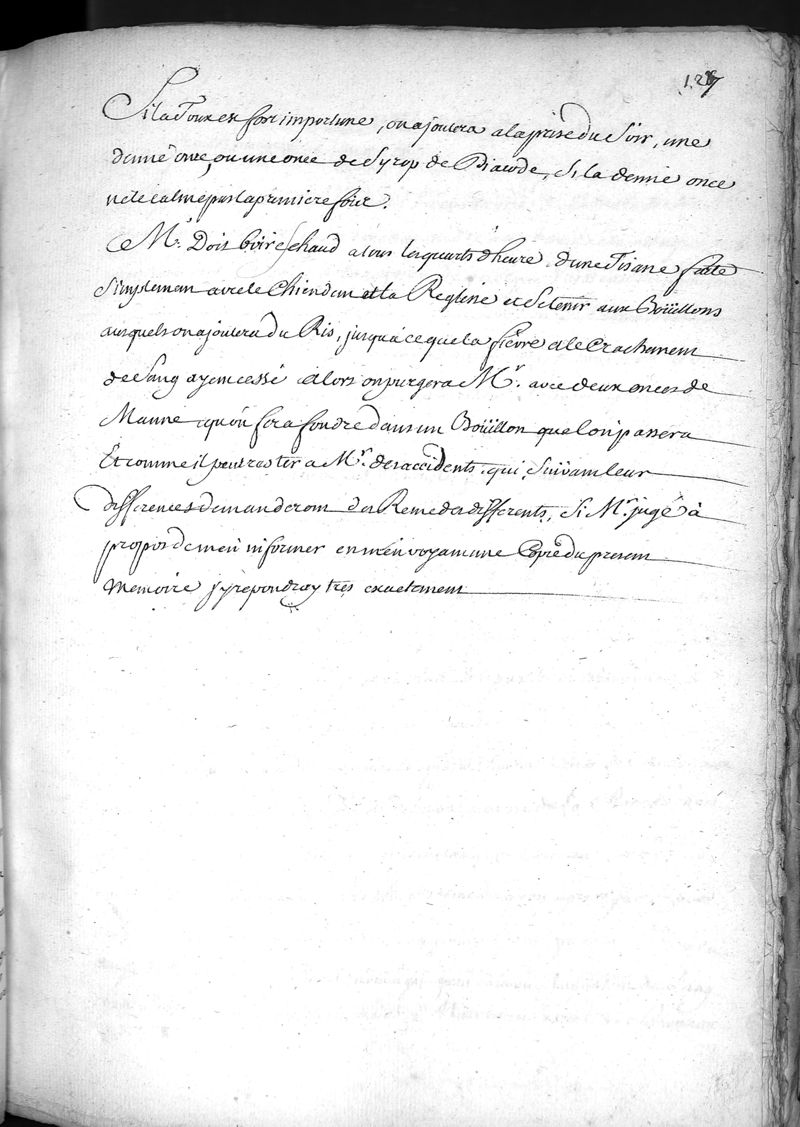 127
Si la Toux est fort importune, on ajoutera a la prise du Soir, une
demie once, ou une once de Syrop de Diacode, Si la demie once
ne le calme pas la premiere fois.
Mr. Doit boire chaud a tous les quarts d'heure d'une Tisane faite
Simplement avec le Chiendent et la Reglisse et Se tenir aux Boüillons
ausquels on ajoutera du Ris, jusqu'a ce que la fievre et le Crachement
de Sang ayent cessé alors on purgera Mr. avec deux onces de
Manne qu'on fera fondre dans un Boüillon que l'on passera
Et comme il peut rester a Mr. des accidents qui Suivant leur
differences demanderont des Remedes differents, Si Mr. juge à
propos de m'en informer en m'envoyant une Copie du present
Memoire j'y repondray tres exactement